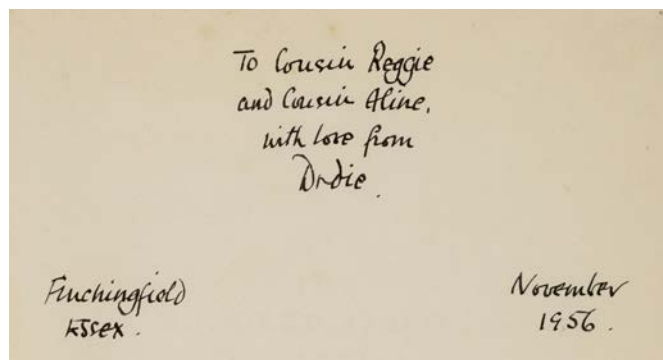 To Cousin Reggie
and Cousin Aline,
with love from
Dodie.
Finchingfield
Essex.
November
1956.